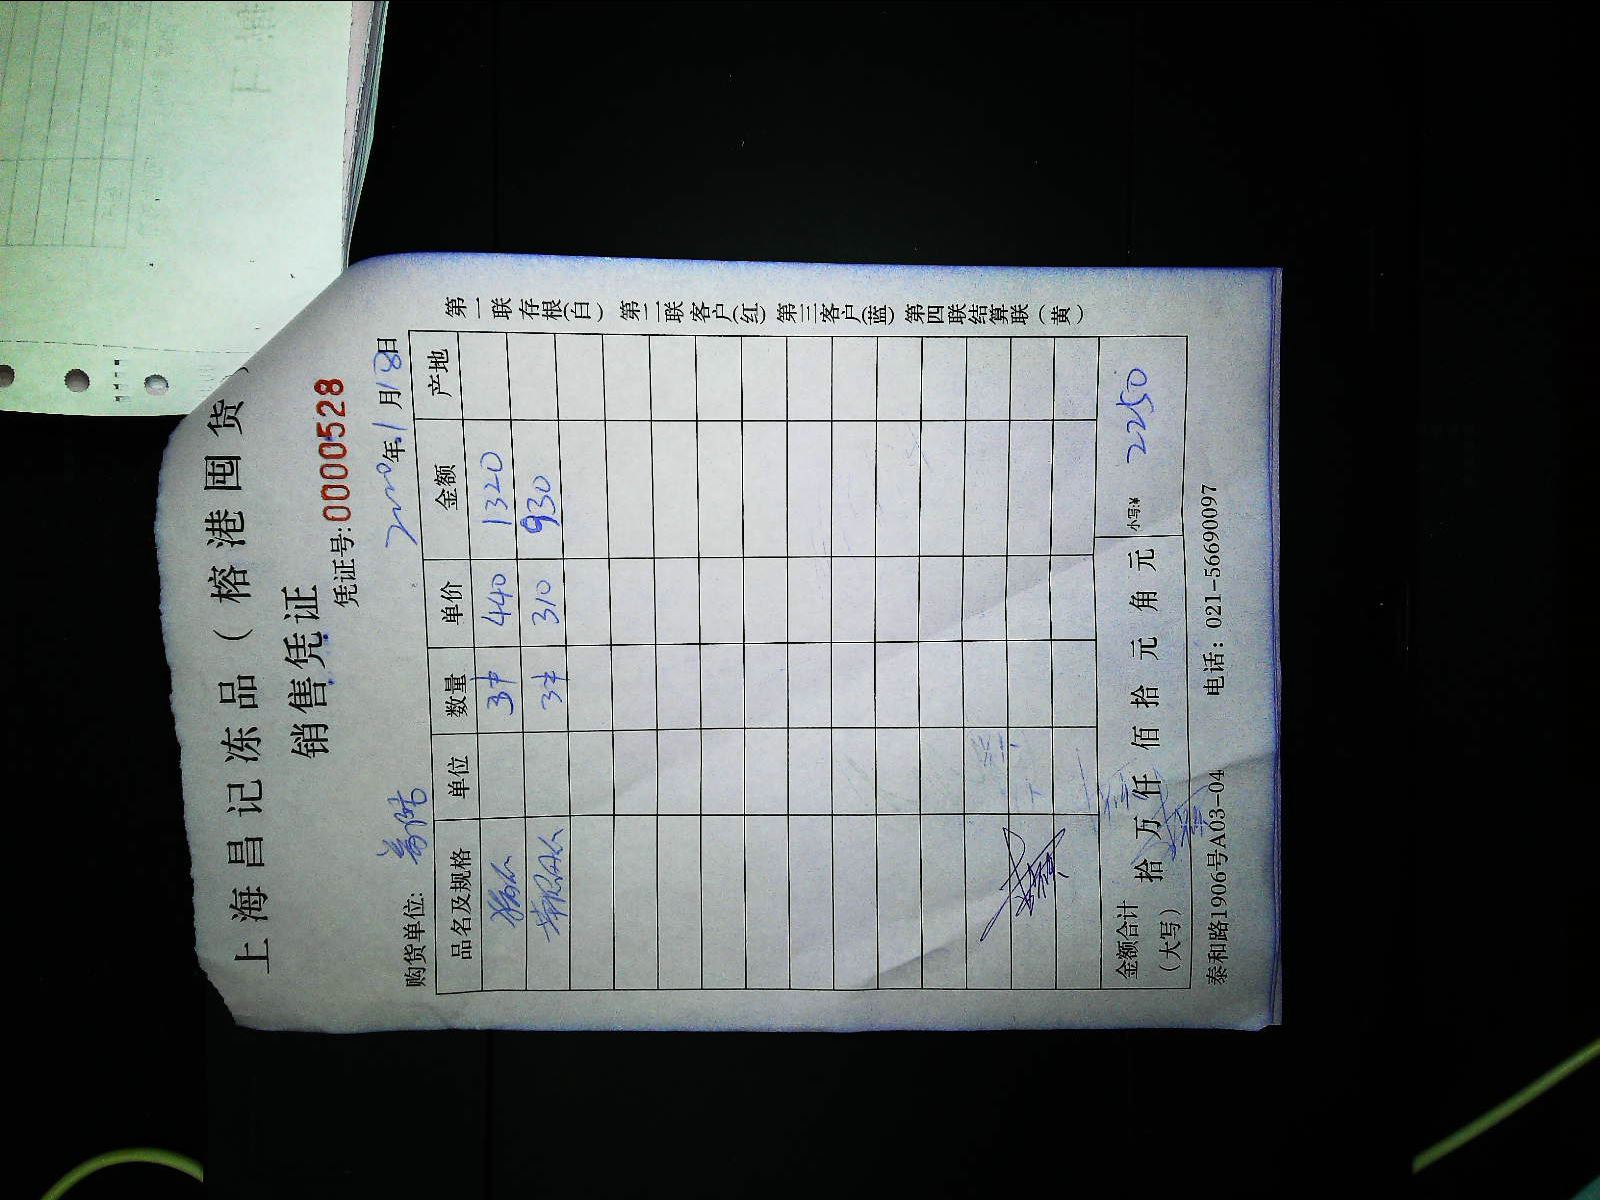 上海昌记冻品（榕港囤货）
销售凭证
凭证号:0000528
购货单位: 2020年1月18日
品名及规格 单位 数量 单价 金额 产地
3件 440 1320
3件 310 930
金额合计（大写） 拾 万 仟 佰 拾 元 角 元 小写:¥ 2250
泰和路1906号A03-04 电话：021-56690097
第一联 存根(白) 第二联 客户(红) 第三客户(蓝) 第四联结算联（黄）